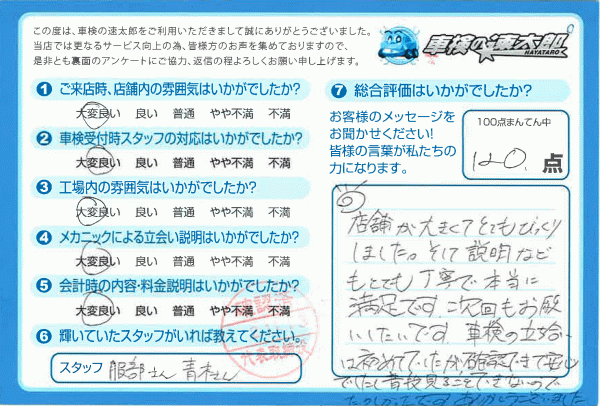 この度は、車検の速太郎をご利用いただきまして誠にありがとうございました。
当店では更なるサービス向上の為、皆様方のお声を集めておりますので、
是非とも裏面のアンケートにご協力、返信の程よろしくお願い申し上げます。
車検の速太郎
HAYATARO
1 ご来店時、店舗内の雰囲気はいかがでしたか?
大変良い 良い 普通 やや不満 不満
2 車検受付時スタッフの対応はいかがでしたか?
大変良い 良い 普通 やや不満 不満
3 工場内の雰囲気はいかがでしたか?
大変良い 良い 普通 やや不満 不満
4 メカニックによる立会い説明はいかがでしたか?
大変良い 良い 普通 やや不満 不満
5 会計時の内容・料金説明はいかがでしたか?
大変良い 良い 普通 やや不満 不満
6 輝いていたスタッフがいれば教えてください。
スタッフ 服部さん 青木さん
確認済
代表取締役
7 総合評価はいかがでしたか?
お客様のメッセージを
お聞かせください!
皆様の言葉が私たちの
力になります。
100点まんてん中
120. 点
店舗が大きくてとてもびっくり
しました。そして説明など
もとても丁寧で本当に
満足です。次回もお願
いしたいです。車検の立ち会い
は初めてでしたが確認できて安心
でした。普段見ることできないので
たのしかったです ありがとうございました